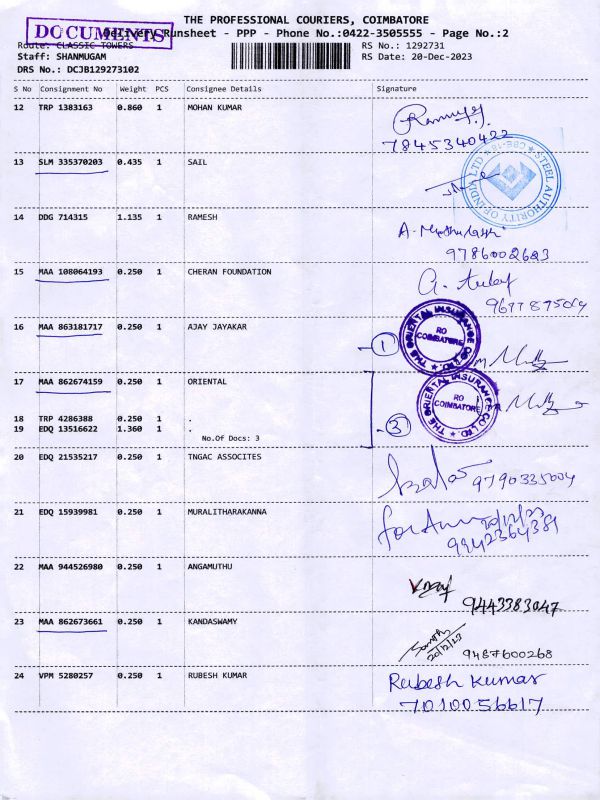 THE PROFESSIONAL COURIERS, COIMBATORE
DOCUMENTS Delivery Runsheet - PPP - Phone No.:0422-3505555 - Page No.:2
Route: CLASSIC TOWERS RS No.: 1292731
Staff: SHANMUGAM RS Date: 20-Dec-2023
DRS No.: DCJB129273102
S No Consignment No Weight PCS Consignee Details Signature
12 TRP 1383163 0.860 1 MOHAN KUMAR
7845340422
13 SLM 335370203 0.435 1 SAIL
STEEL AUTHORITY OF INDIA LTD
14 DDG 714315 1.135 1 RAMESH
9786002623
15 MAA 108064193 0.250 1 CHERAN FOUNDATION
16 MAA 863181717 0.250 1 AJAY JAYAKAR
1
THE ORIENTAL INSURANCE CO. LTD. RO COIMBATORE
17 MAA 862674159 0.250 1 ORIENTAL
THE ORIENTAL INSURANCE CO. LTD. RO COIMBATORE
18 TRP 4286388 0.250 1 .
19 EDQ 13516622 1.360 1 .
3
No.Of Docs: 3
20 EDQ 21535217 0.250 1 TNGAC ASSOCITES
9790335004
21 EDQ 15939981 0.250 1 MURALITHARAKANNA
20/12/23
9942364381
22 MAA 944526980 0.250 1 ANGAMUTHU
9443383047
23 MAA 862673661 0.250 1 KANDASWAMY
20/12/23
9487600268
24 VPM 5280257 0.250 1 RUBESH KUMAR
Rubesh Kumar
7010056617